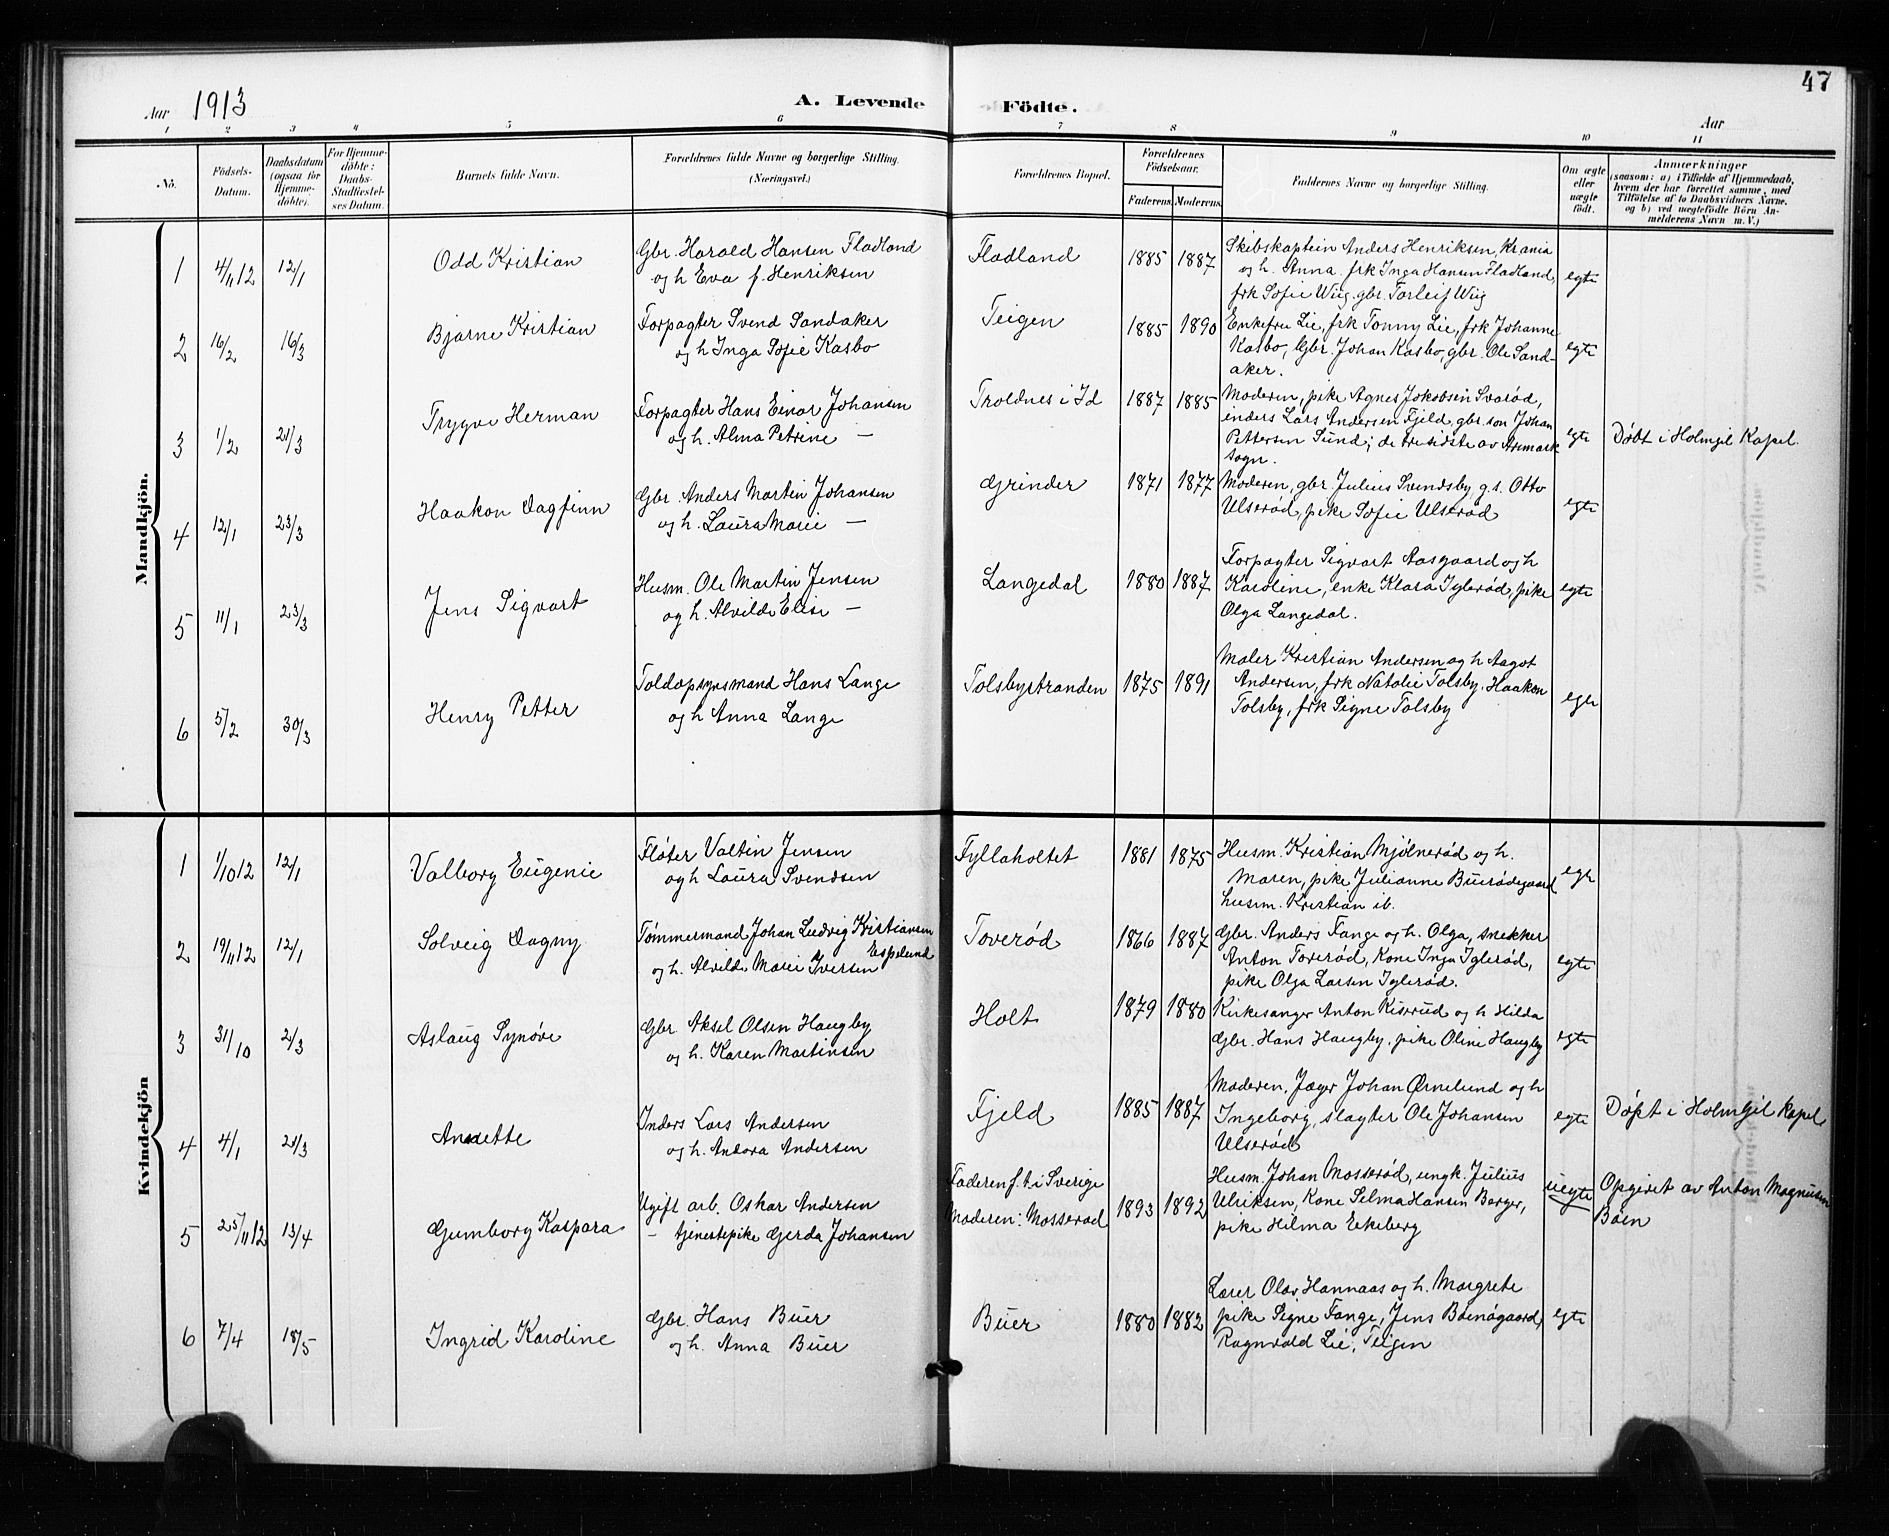 47
Aar 1913
A. Levende Födte.
Aar
1 2 3 4 5 6 7 8 9 10 11
No.
Födsels-Datum.
Daabsdatum (ogsaa for Hjemmedöbte).
For Hjemmedöbte: Daabs-Stadfæstelses Datum.
Barnets fulde Navn.
Forældrenes fulde Navne og borgerlige Stilling. (Næringsvei.)
Forældrenes Bopæl.
Forældrenes Födselsaar.
Faderens. Moderens.
Faddernes Navne og borgerlige Stilling.
Om ægte eller uægte födt.
Anmærkninger
(saasom: a) i Tilfælde af Hjemmedaab, hvem der har forrettet samme, med Tilföielse af to Daabsvidners Navne. og b) ved uægtefödte Börn Anmelderens Navn m. V.)
Mandkjön.
1 4/11 12 12/1 Odd Kristian
Gbr. Harald Hansen Fladland
og h Eva f. Henriksen
Fladland 1885 1887
Skibskaptein Anders Henriksen, Krania
og h. Anna. frk Inga Hansen Fladland,
frk Sofie Wiig. gbr. Torleif Wiig
egte
2 16/2 16/3 Bjarne Kristian
Forpagter Svend Sandaker
og h Inga Sofie Kasbo
Teigen 1885 1890
Enkefru Lie, frk Tonny Lie, frk Johanne
Kasbo, Gbr. Johan Kasbo, gbr. Ole Sand-
aker.
egte
3 1/2 21/3 Trygve Herman
Forpagter Hans Einar Johansen
og h. Alma Petrine —
Troldnes i Id 1887 1885
Moderen, pike Agnes Jakobsen Svarød,
inders Lars Andersen Fjeld, gbr. søn Johan
Pettersen Sund; de tre sidste av Aremark
sogn.
egte
Døbt i Holmgil Kapel.
4 12/1 23/3 Haakon Dagfinn
Gbr. Anders Martin Johansen
og h. Laura Marie —
Grinder 1871 1877
Moderen, gbr. Julius Svendsby g.s. Otto
Ulserød, pike Sofie Ulserød
egte
5 11/1 23/3 Jens Sigvart
Husm. Ole Martin Jensen
og h. Alvilde Elise —
Langedal 1880 1887
Forpagter Sigvart Aasgaard og h
Karoline, enke Klara Iglerød, pike
Olga Langedal.
egte
6 5/2 30/3 Henry Petter
Toldopsynsmand Hans Lange
og h Anna Lange
Tolsbystranden 1875 1891
Maler Kristian Andersen og h Aagot
Andersen, frk Natalie Tolsby, Haakon
Tolsby, frk Signe Tolsby
egte
Kvindekjön
1 1/10 12 12/1 Valborg Eugenie
Fløter Valtin Jensen
og h Laura Svendsen
Fyllaholtet 1881 1875
Husm. Kristian Mjølnerød og h.
Maren, pike Julianne Buerødegaard
husm. Kristian ib.
egte
2 19/11 12 12/1 Solveig Dagny
Tømmermand Johan Ludvig Kristiansen
Espelund
og h. Alvilde Marie Iversen
Toverød 1866 1887
Gbr. Anders Fange og h. Olga, snekker
Anton Toverød, Kone Inga Iglerød,
pike Olga Larsen Iglerød.
egte
3 31/10 2/3 Aslaug Synøve
Gbr Aksel Olsen Haugby
og h. Karen Martinsen
Holt 1879 1880
Kirkesanger Anton Kiserud og h Hilda
Gbr. Hans Haugby, pike Oline Haugby
egte
4 4/1 21/3 Annette
Inders Lars Andersen
og h. Antora Andersen
Fjeld 1885 1887
Moderen, Jæger Johan Ørnelund og h
Ingeborg, slagter Ole Johansen
Ulserød
egte
Døpt i Holmgil kapel
5 25/11 12 13/4 Gumborg Kaspara
Ugift arb. Oskar Andersen
— tjenestepike Gerda Johansen
Faderen f. t. i Sverige
Moderen: Mosserød 1893 1892
Husm. Johan Mosserød, ungk. Julius
Ulriksen, Kone Selma Hansen Berger,
pike Hilma Ekeberg
uegte
Opgivet av Anton Magnussen
Bøen
6 7/4 18/5 Ingrid Karoline
Gbr. Hans Buer
og h. Anna Buer
Buer 1880 1882
Lærer Olav Hannaas og h. Margrete
pike Signe Fange, Jens Bøensgaard,
Ragnvald Lie, Teigen
egte